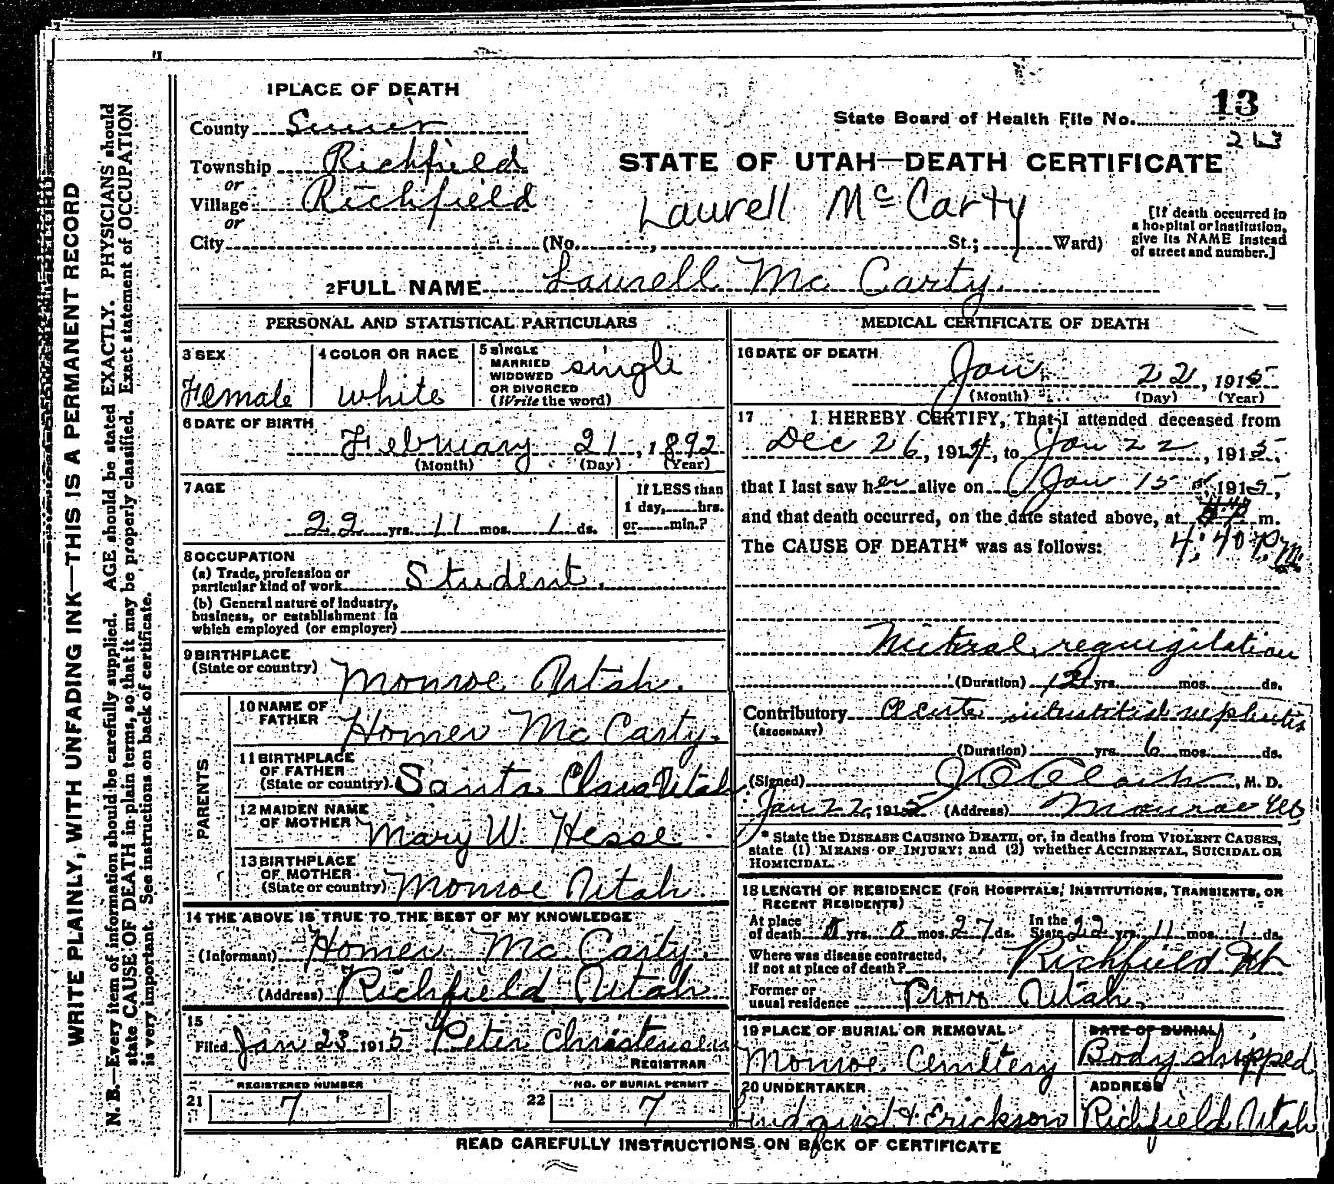 WRITE PLAINLY, WITH UNFADING INK—THIS IS A PERMANENT RECORD
N. B.—Every item of information should be carefully supplied. AGE should be stated EXACTLY. PHYSICIANS should
state CAUSE OF DEATH in plain terms, so that it may be properly classified. Exact statement of OCCUPATION
is very important. See instructions on back of certificate.
1 PLACE OF DEATH
County Sevier
Township Richfield
or
Village Richfield
or
City (No. , St.; Ward)
State Board of Health File No. 13
263
STATE OF UTAH—DEATH CERTIFICATE
Laurell McCarty
[If death occurred in
a hospital or institution,
give its NAME instead
of street and number.]
2 FULL NAME Laurell Mc Carty.
PERSONAL AND STATISTICAL PARTICULARS
3 SEX
Female
4 COLOR OR RACE
White
5 SINGLE
MARRIED
WIDOWED
OR DIVORCED
(Write the word)
single
6 DATE OF BIRTH
February 21, 1892
(Month) (Day) (Year)
7 AGE
22 yrs. 11 mos. 1 ds.
If LESS than
1 day, hrs.
or min.?
8 OCCUPATION
(a) Trade, profession or
particular kind of work Student.
(b) General nature of industry,
business, or establishment in
which employed (or employer)
9 BIRTHPLACE
(State or country) Monroe Utah.
PARENTS
10 NAME OF
FATHER Homer Mc Carty.
11 BIRTHPLACE
OF FATHER
(State or country) Santa Clara Utah
12 MAIDEN NAME
OF MOTHER Mary W. Hesse.
13 BIRTHPLACE
OF MOTHER
(State or country) Monroe Utah.
14 THE ABOVE IS TRUE TO THE BEST OF MY KNOWLEDGE
(Informant) Homer Mc Carty.
(Address) Richfield Utah
15
Filed Jan 23 1915 Peter Christensen
REGISTRAR
21 REGISTERED NUMBER 7
22 NO. OF BURIAL PERMIT 7
MEDICAL CERTIFICATE OF DEATH
16 DATE OF DEATH
Jan 22, 1915
(Month) (Day) (Year)
17 I HEREBY CERTIFY, That I attended deceased from
Dec 26, 1914, to Jan 22, 1915,
that I last saw her alive on Jan 15, 1915,
and that death occurred, on the date stated above, at m.
4:40 P.M.
The CAUSE OF DEATH* was as follows:
Mitral regurgitation
(Duration) 12 yrs. mos. ds.
Contributory Acute interstitial nephritis
(SECONDARY)
(Duration) yrs. 6 mos. ds.
(Signed) , M. D.
Jan 22, 1915 (Address) Monroe
* State the DISEASE CAUSING DEATH, or, in deaths from VIOLENT CAUSES,
state (1) MEANS OF INJURY; and (2) whether ACCIDENTAL, SUICIDAL OR
HOMICIDAL.
18 LENGTH OF RESIDENCE (FOR HOSPITALS, INSTITUTIONS, TRANSIENTS, OR
RECENT RESIDENTS)
At place
of death 0 yrs. 0 mos. 27 ds. In the
State 22 yrs. 11 mos. 1 ds.
Where was disease contracted,
if not at place of death? Richfield Ut
Former or
usual residence Provo Utah.
19 PLACE OF BURIAL OR REMOVAL
Monroe Cemitery
DATE OF BURIAL
Body shipped
20 UNDERTAKER
Lindquist & Erickson
ADDRESS
Richfield Utah
READ CAREFULLY INSTRUCTIONS ON BACK OF CERTIFICATE